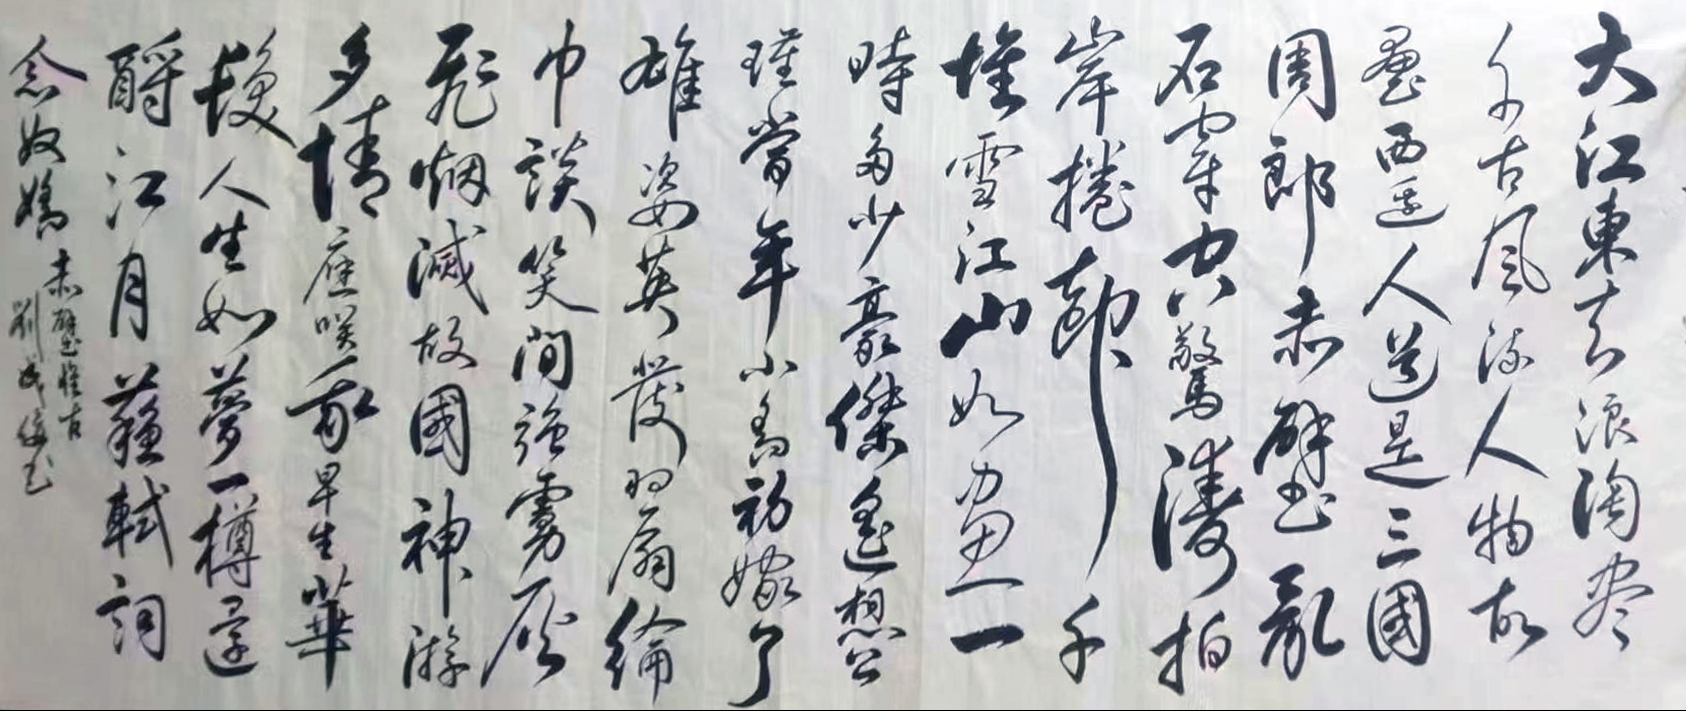 大江東去浪淘盡
千古風流人物故
壘西邊人道是三國
周郎赤壁亂
石穿空驚濤拍
岸捲起千
堆雪江山如畫一
時多少豪傑遙想公
瑾當年小喬初嫁了
雄姿英發羽扇綸
巾談笑間強虜灰
飛烟滅故國神游
多情應笑我早生華
髮人生如夢一樽還
酹江月蘇軾詞
念奴嬌赤壁懷古
劉